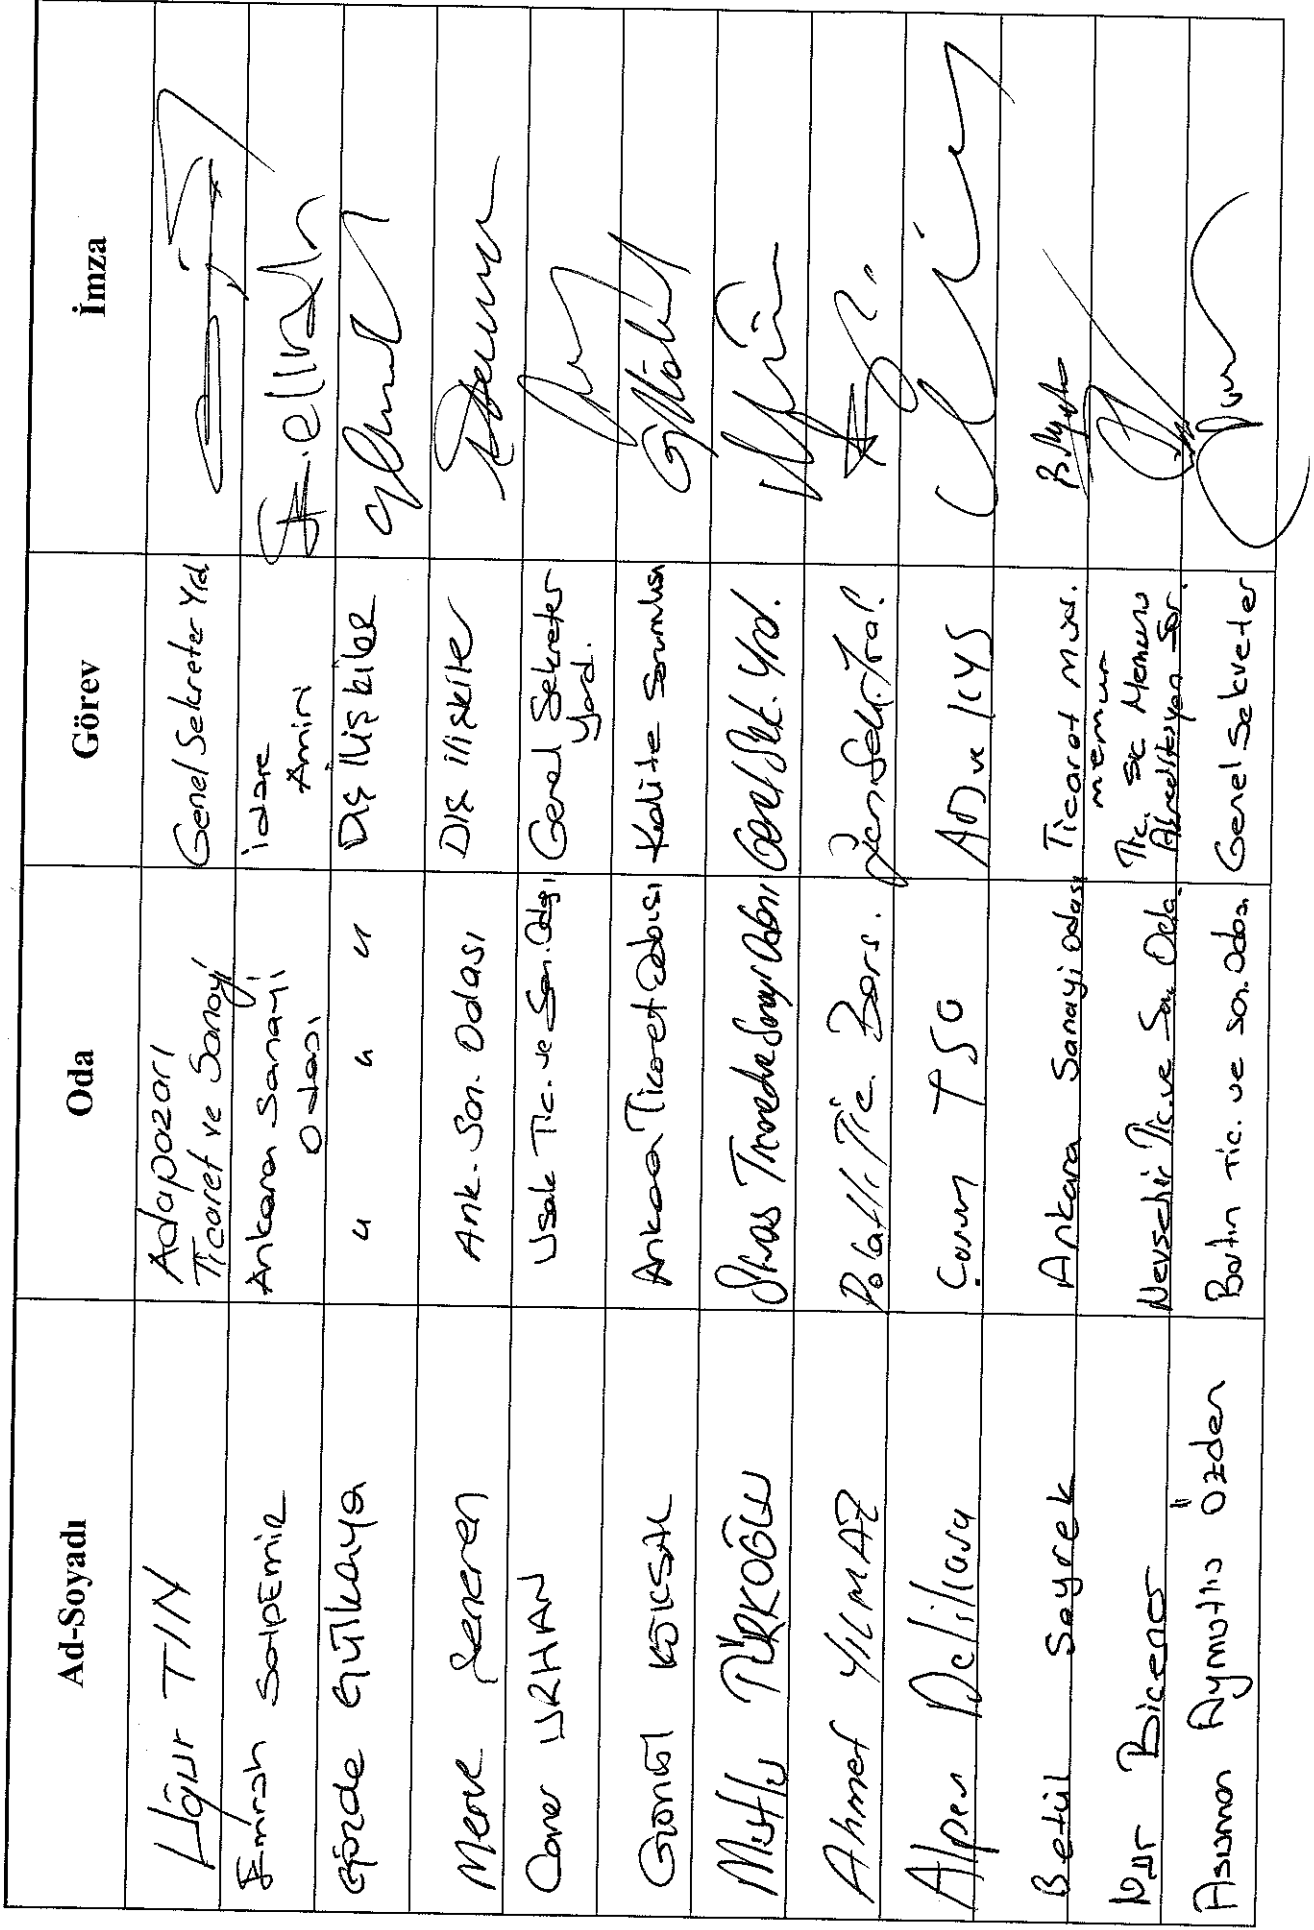 Ad-Soyadı Oda Görev İmza
Uğur TIN Adapazarı Ticaret ve Sanayi Genel Sekreter Yrd.
Emrah SalpEmir Ankara Sanayi Odası idare Amiri
Gözde Gülkaya " " " Dış ilişkiler
Merve Şeneren Ank. San. Odası Dış ilişkiler
Caner URHAN Uşak Tic. ve San. Odası Genel Sekreter Yard.
Gönül KÖKSAL Ankara Ticaret Odası Kalite Sorumlusu
Mutlu TÜRKOĞLU Sivas Ticaret ve Sanayi Odası Genel Sek. Yrd.
Ahmet YILMAZ Polatlı Tic. Bors.
Alper Çorum TSO AD ve KYS
Betül Seyrek Ankara Sanayi odası Ticaret mua. memur
Nur Nevşehir Tic. ve San. Oda. Tic. Sic. Memuru Akreditasyon Sor.
Asuman Aymutlu Özden Bartın Tic. ve San. Odası Genel Sekreter